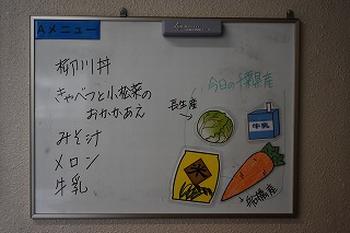 Aメニュー
柳川丼
きゃべつと小松菜の
おかかあえ
みそ汁
メロン
牛乳
今日の千葉県産
長生産
牛乳
米
船橋産